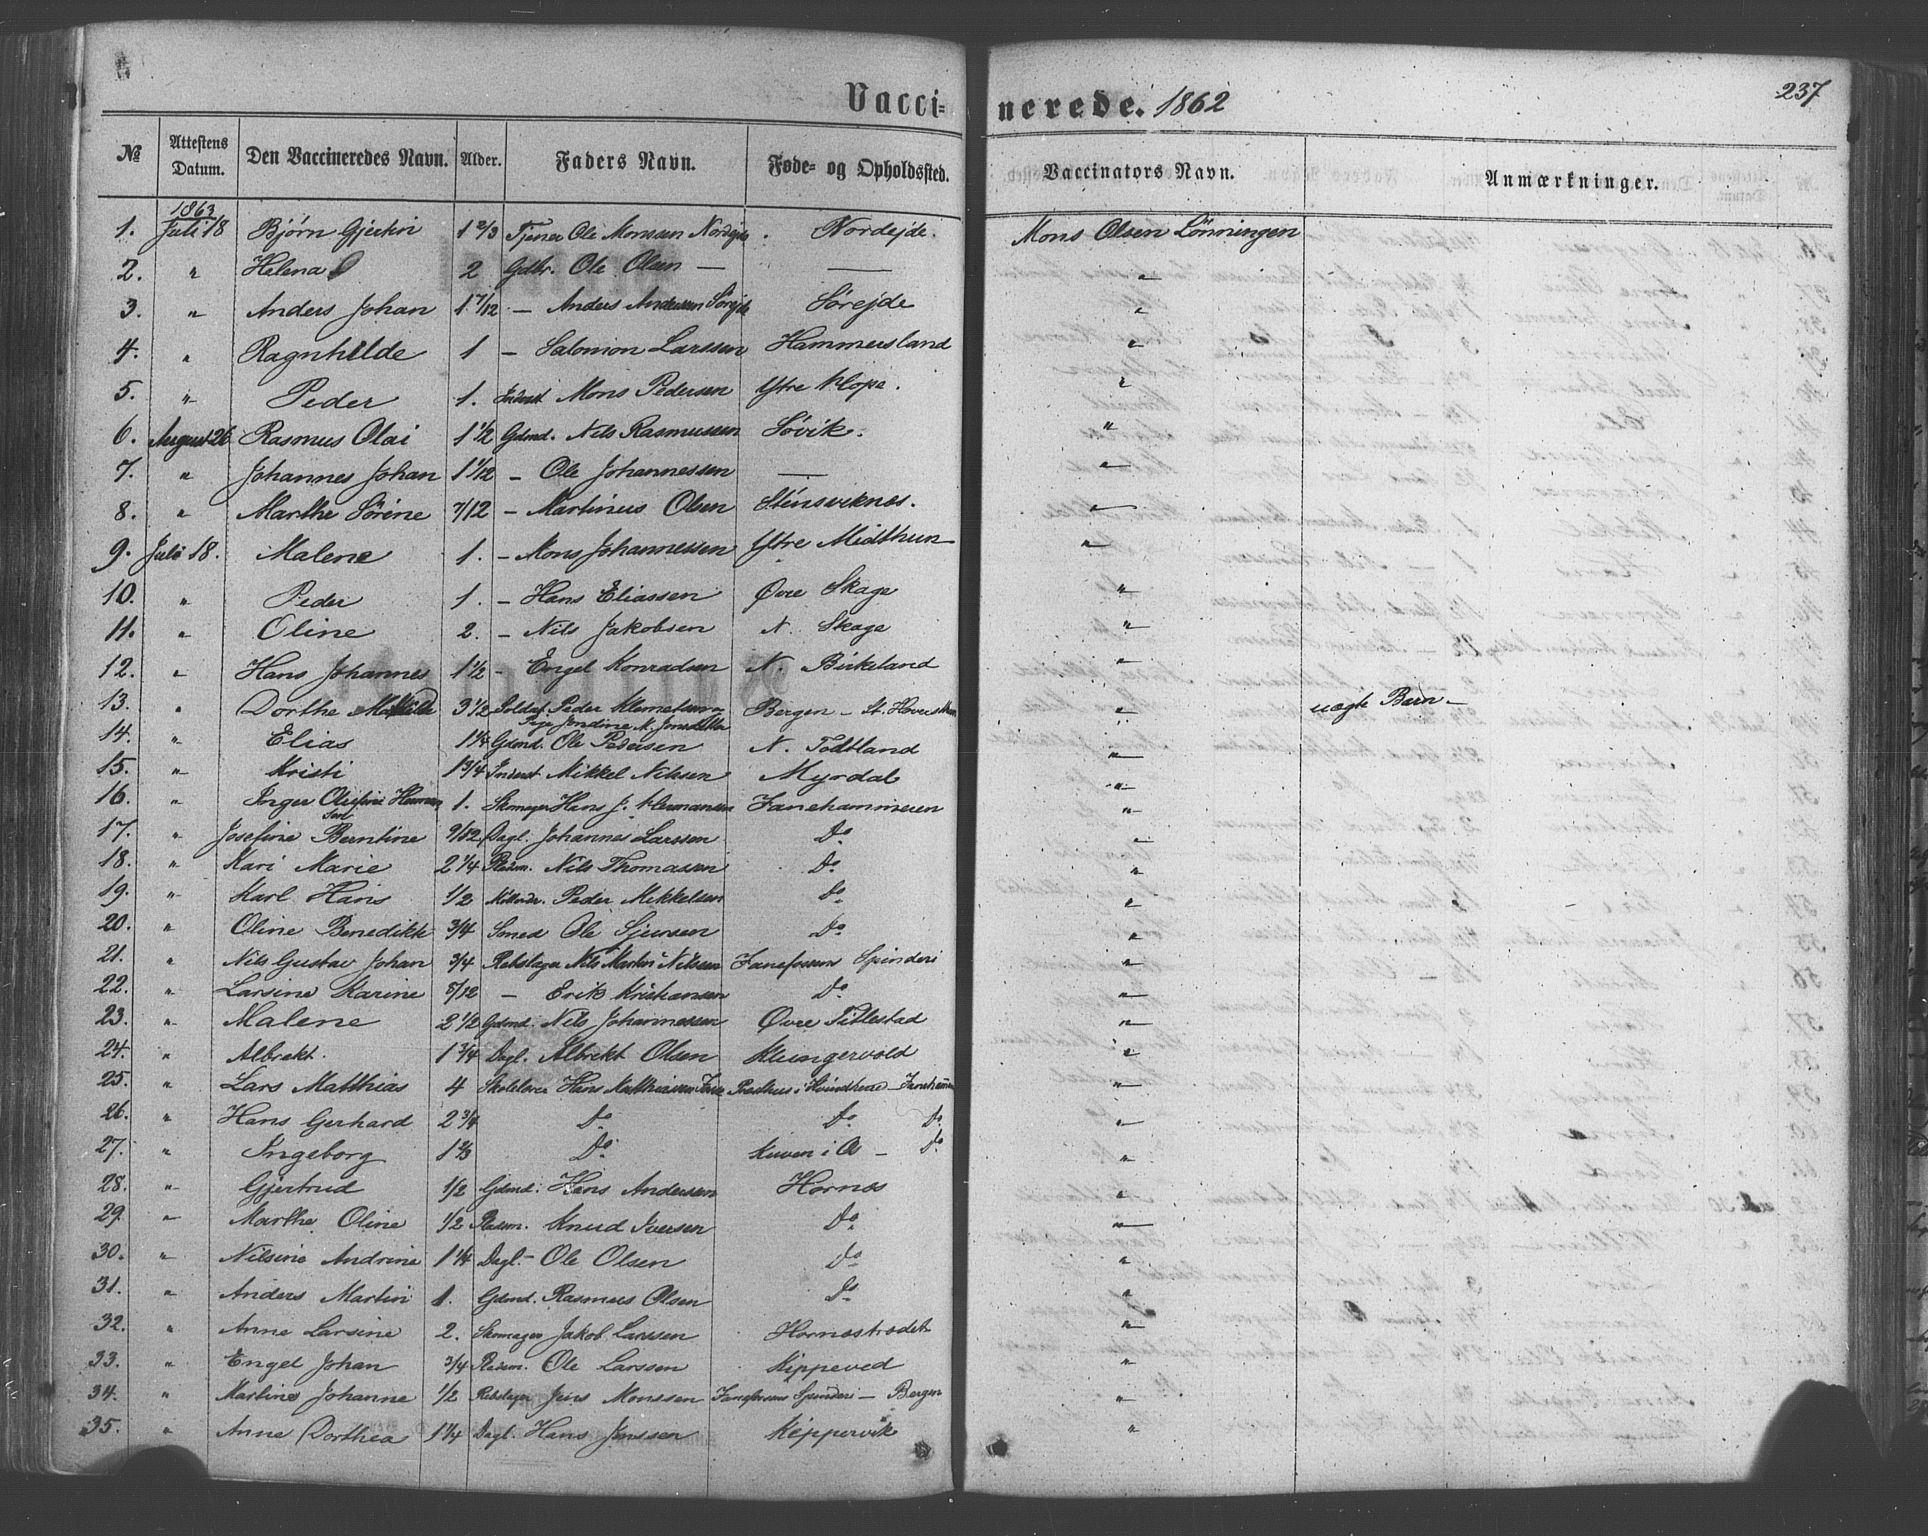 Vacci- nerede. 1862 237
№ Attestens Datum. Den Vaccineredes Navn. Alder. Faders Navn. Føde- og Opholdssted. Vaccinators Navn. Anmærkninger.
1863
1. Juli 18 Bjørn Gjertin 1 2/3 Tjener Ole Monsen Nordejde. Nordejde. Mons Olsen Lönningen
2. " Helena 2 Gdbr. Ole Olsen — — "
3. " Anders Johan 1 7/12 — Anders Andersen Sørejde Sørejde "
4. " Ragnhilde 1 — Salomon Larssen Hammersland "
5. " Peder 1. Inderst Mons Pedersen Ytre Klope. "
6. August 26 Rasmus Olai 1 1/2 Gdmd. Nils Rasmussen Søvik. "
7. " Johannes Johan 1 1/12 — Ole Johannessen — "
8. " Marthe Sørine 7/12 — Martinus Olsen Stensviknes. "
9. Juli 18. Malene 1. — Mons Johannessen Ytre Midthun "
10. " Peder 1. — Hans Eliassen Øvre Skage "
11. " Oline 2. — Nils Jakobsen N. Skage "
12. " Hans Johannes 1 1/2 - Engel Konradsen N. Birkeland "
13. " Dorthe Mathilde 3 1/2 Soldat Peder Klemetsen " Bergen — St. " uægte Barn —
Pige Jondine M.
14. " Elias 1 1/4 Gdmd. Ole Pedersen N. Tödtland "
15. " Kristi 1 3/4 Inderst Mikkel Nilsen Myrdal "
16. " Inger Olefine 1. Skomager Hans J. Hermansen Fanehammeren "
17. " Josefine Berntine 9/12 Dagl. Johannes Larssen Do "
18. " Kari Marie 2 1/4 Pladsm. Nils Thomassen Do "
19. " Karl Hans 1/2 Peder Mikkelsen Do "
20. " Oline Benedikte 3/4 Smed Ole Sjursen Do "
21. " Nils Gustav Johan 3/4 Rebslager Nils Martin Nilsen Fanefossens Spinderi "
22. " Larsine Karine 8/12 — Erik Kristiansen Do "
23. " Malene 2 1/2 Gdmd. Nils Johannessen Øvre Titlestad "
24. " Albrekt. 1 3/4 Dagl. Albrekt Olsen Klungervold "
25. " Lars Matthias 4 Skolelærer Hans Mathiassen "
26. " Hans Gerhard 2 3/4 Do Do Do "
27. " Ingeborg 1 2/3 Do Kuven i Os — Do "
28. " Gjertrud 1/2 Gdmd. Hans Andersen Hornes "
29. " Marthe Oline 1/2 Pladsm. Knud Iversen Do "
30. " Nilsine Andrine 1 1/4 Dagl. — Ole Olsen Do "
31. " Anders Martin 1. Gdmd. Rasmus Olsen Do "
32. " Anne Larsine 2. Skomager Jakob Larssen Hornestrædet "
33. " Engel Johan 3/4 Pladsm. Ole Larssen Kippeved "
34. " Martine Johanne 1/2 Rebslager Jens Monssen Fanefossens Spinderi — Bergen "
35. " Anne Dorthea 1 1/4 Dagl. Hans Jenssen Kippervik "